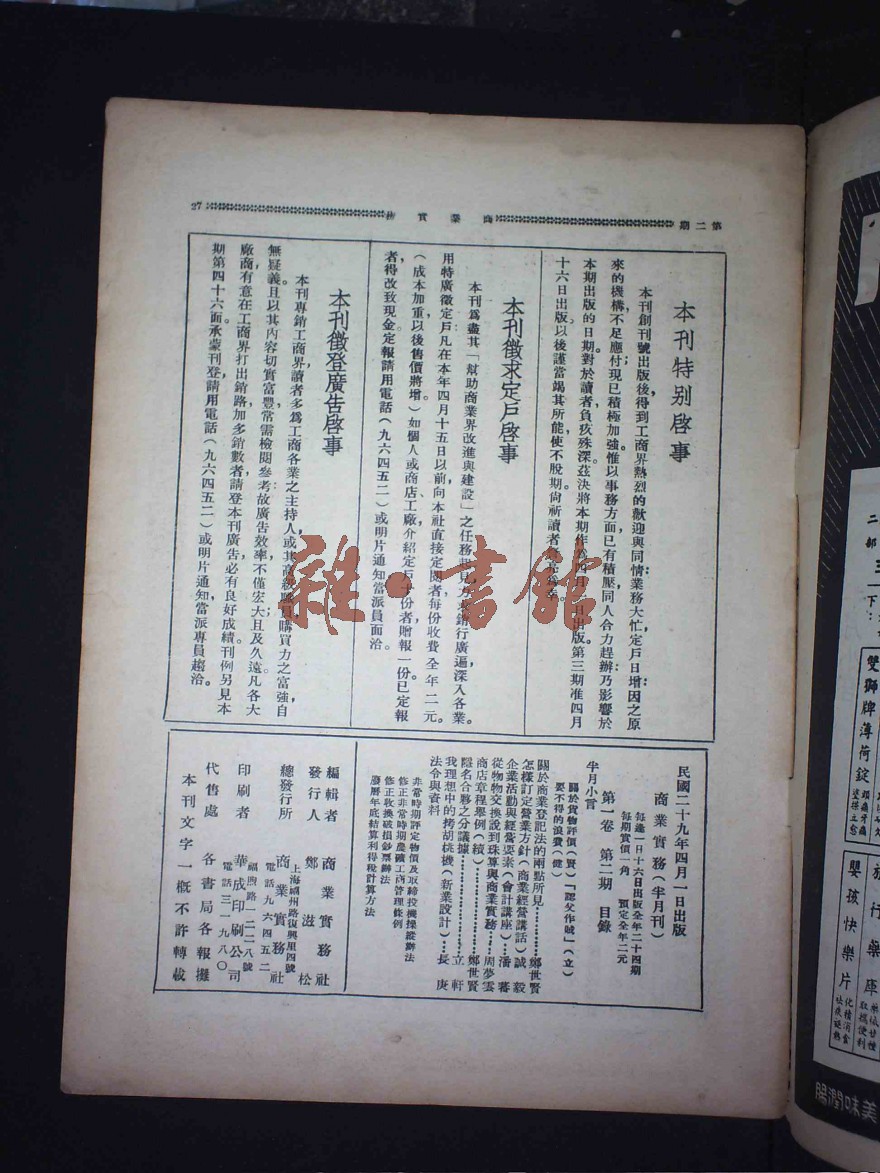 第二期
商業實務
27
本刊特别啓事
本刊創刊號出版後得到工商界熱烈的歡迎與同情業務大忙定戶日增因之原
來的機構不足應付現已積極加強惟以事務方面已有積壓同人合力趕辦乃影響於
本期出版的日期對於讀者負疚殊深茲決將本期作爲四月一日出版第三期准四月
十六日出版以後謹當竭其所能使不脫期尙祈讀者
本刊徵求定戶啓事
本刊爲盡其「幫助商業界改進與建設」之任務
銷行廣遍深入各業。
用特廣徵定戶凡在本年四月十五日以前向本社直接定閱者每份收費全年二元。
(成本加重以後售價將增)如個人或商店、工廠介紹定戶十份者贈報一份已定報
者得改致現金定報請用電話(九六四五二)或明片通知當派員面洽。
本刊徵登廣告啓事
本刊專銷工商界讀者多爲工商各業之主持人或其高級職員購買力之富強自
無疑義。且以其內容切實富豐常需檢閱參考故廣告效率不僅宏大且及久遠凡各大
廠商有意在工商界打出銷路加多銷數者請登本刊廣告必有良好成績刊例另見本
期第四十六面。承蒙刊登請用電話(九六四五二)或明片通知當派專員趨洽。
民國二十九年四月一日出版
商業實務(半月刊)
每逢一日十六日出版全年二十四期
每期實價一角 預定全年二元
第一卷 第二期 目錄
半月小言
關於貨物評價(賢)「認父作賊」(立)
要不得的浪費(健)
關於商業登記法的兩點所見…………鄭世賢
怎樣訂定營業方針(商業經營講話)誠毅
企業活動與經營要素(會計講座)…潘蕃
從物物交換說到珠算與商業實務……周夢雲
商店章程舉例(續)…………鄭世賢
隱名合夥之分議據…………立軒
我理想中的拷胡桃機(新業設計)…長庚
法令與資料
非常時期評定物價及取締投機操縱辦法
修正非常時期農礦工商管理條例
修正收換破損鈔票辦法
廢曆年底結算利得稅計算方法
編輯者 商業實務社
發行人 鄭滋松
總發行所 商業實務社
上海福州路復興里四號
電話九六四五二
印刷者 華成印刷公司
電話三一九八〇
代售處 各書局各報攤
本刊文字一概不許轉載
雜·書館
二部
三
下
雙獅牌薄荷錠
旅行藥庫
嬰孩快樂片
取攜便利
化積消食
美味潤腸